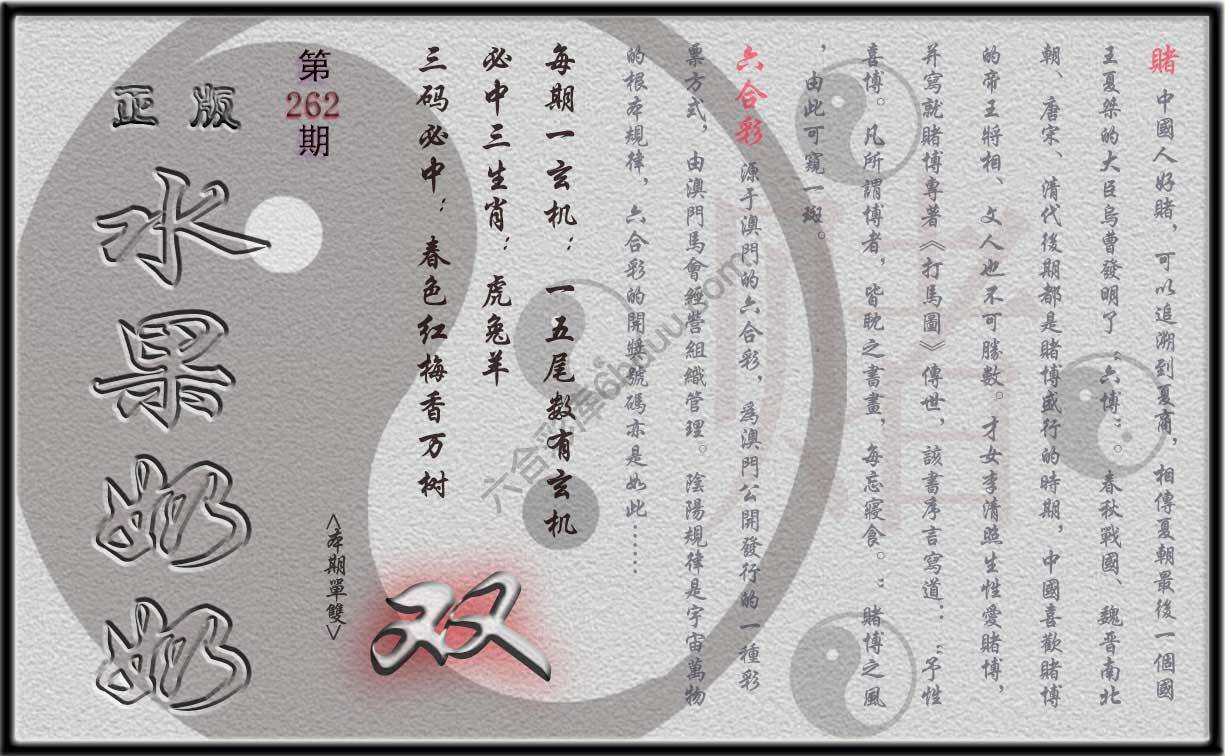 賭 中國人好賭，可以追溯到夏商，相傳夏朝最後一個國
王夏桀的大臣烏曹發明了“六博”。春秋戰國、魏晋南北
朝、唐宋、清代後期都是賭博盛行的時期，中國喜歡賭博
的帝王將相、文人也不可勝數。才女李清照生性愛賭博，
并寫就賭博專著《打馬圖》傳世，該書序言寫道：“予性
喜博。凡所謂博者，皆眈之書畫，每忘寢食。”賭博之風
，由此可窺一斑。
六合彩 源于澳門的六合彩，爲澳門公開發行的一種彩
票方式，由澳門馬會經營組織管理。陰陽規律是宇宙萬物
的根本規律，六合彩的開獎號碼亦是如此……
每期一玄机：一五尾数有玄机
必中三生肖：虎兔羊
三码必中：春色红梅香万树
<本期單雙>
双
第
262
期
正版
水果奶奶
賭
六合彩库6huuu.com